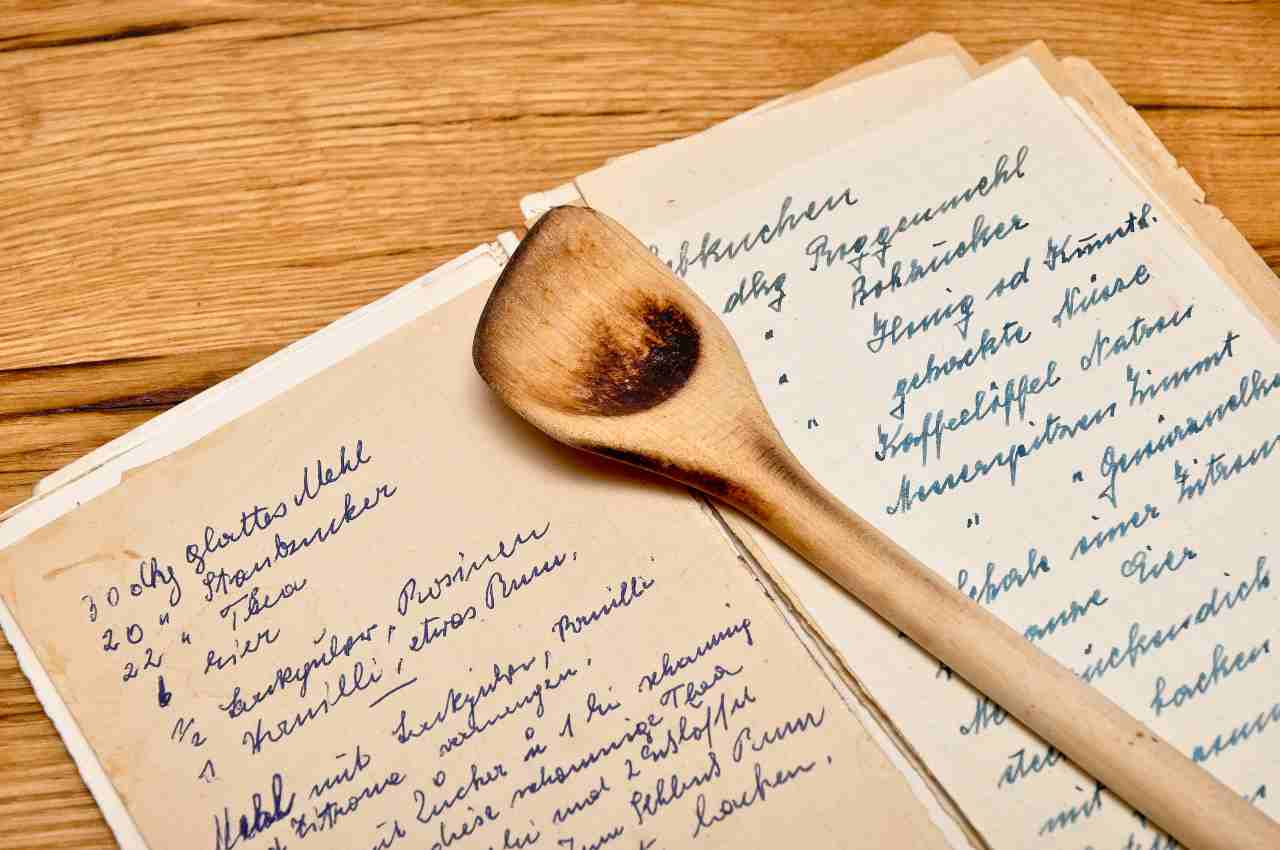 30 dkg glattes Mehl
20 " Staubzucker
22 " Thea
6 Eier
1/2 Backpulver, Rosinen
1 Vanilli, etwas Rum.
Mehl mit Backpulver, Vanilli
Zitrone vermengen.
mit Zucker u 1 Ei schaumig
diese schaumige Thea
und 2 Esslöffel
Zum Schluss Rum
backen.
ebkuchen
dkg Roggenmehl
" Rohzucker
" Honig od Kunsth.
" gehackte Nüsse
Kaffeelöffel Natron
Messerspitzen Zimmt
" " Gewürznelke
schale einer Zitron
ganze Eier
rückendick
backen
mit